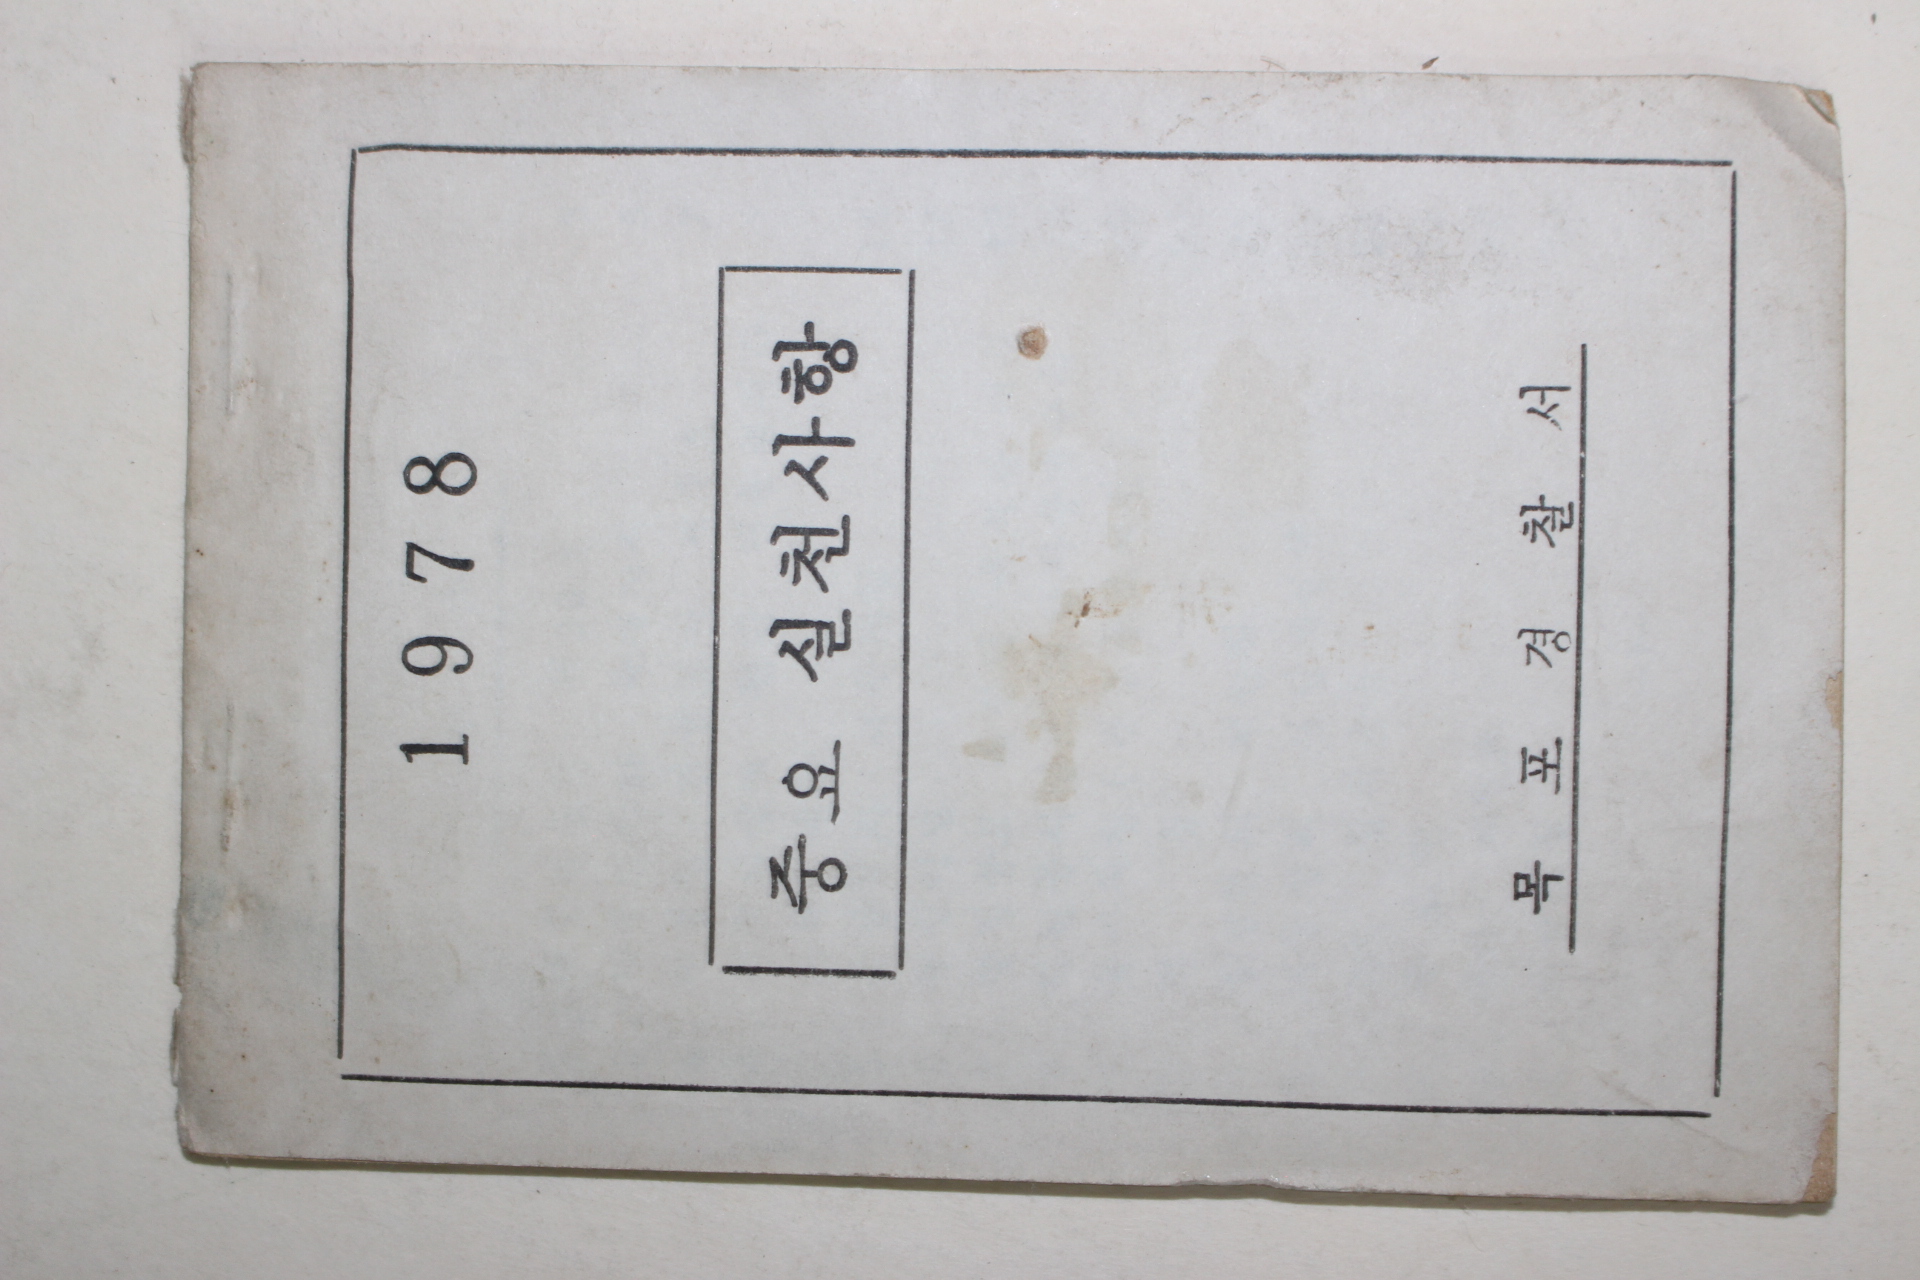 1978
중요 실천사항
목포경찰서